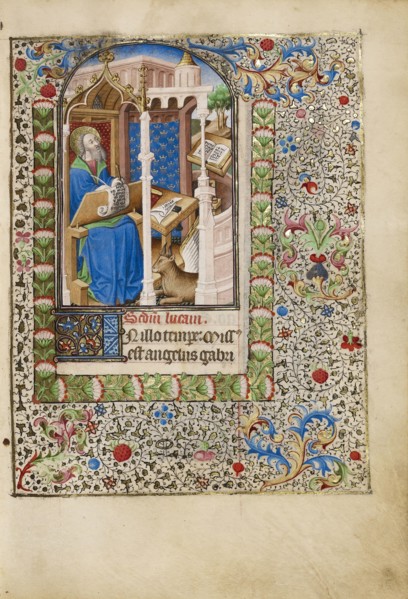 Sedm lucam.
In illo tempe. Miss
est angelus gabri